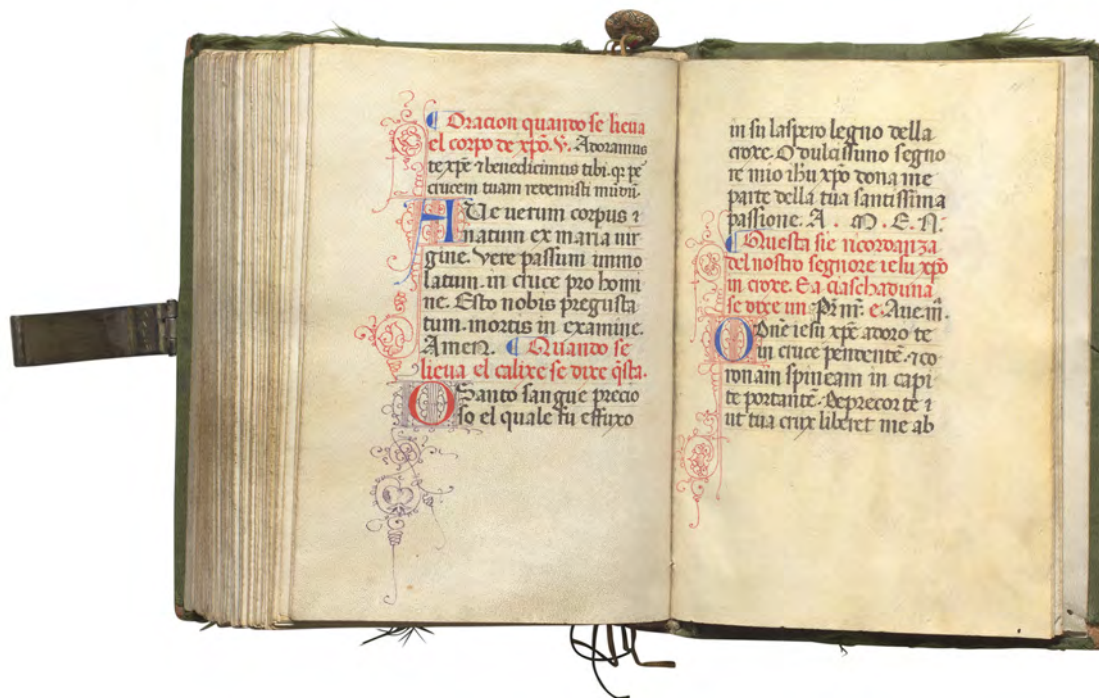 ¶ Oracion quando se lieua
el corpo de xpõ. V. Adoramus
te xpẽ ⁊ benedicimus tibi. qꝛ pẽ
crucem tuam redemisti mũdũ.
AUe uerum corpus ⁊
natum ex maria uir
gine. Vere passum immo
latum. in cruce pro homi
ne. Esto nobis pregusta
tum. mortis in examine.
Amen. ¶ Quando se
lieua el calixe se dixe q̃sta.
O Santo sangue precio
so el quale fu effuxo
in su laspero legno della
croxe. O dulcissimo segno
re mio ihũ xpo dona me
parte della tua santissima
passione. A . M . E . N.
¶ Questa sie ricordanza
del nostro segnore iesu xpõ
in croxe. E a ciaschaduna
se dixe un Pr̃ nr̃. e. Aue. m̃.
O Dñe iesu xpẽ adoro te
in cruce pendentẽ. ⁊ co
ronam spineam in capi
te portantẽ. Deprecor te ⁊
ut tua crux liberet me ab